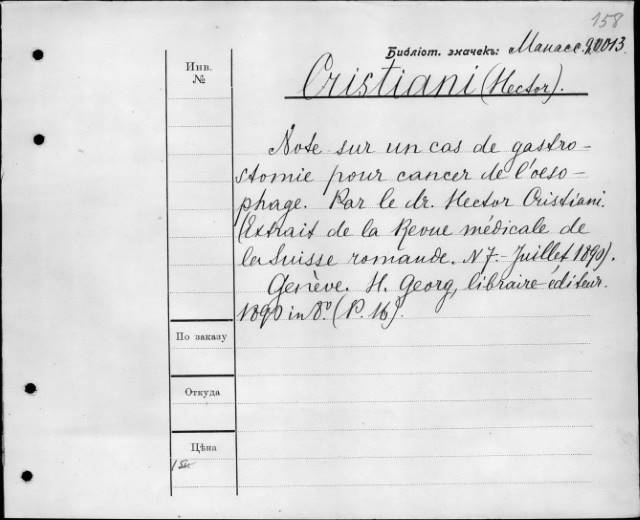 158
Библіот. значекъ: Манасс. 20013
Инв.
№
Cristiani (Hector).
Note sur un cas de gastro-
stomie pour cancer de l'oeso-
phage. Par le dr. Hector Cristiani.
(Extrait de la Revue médicale de
la Suisse romande. N 7.- Juillet 1890).
Genève. H. Georg, libraire-éditeur.
1890 in 8º. (P. 16).
По заказу
Откуда
Цѣна